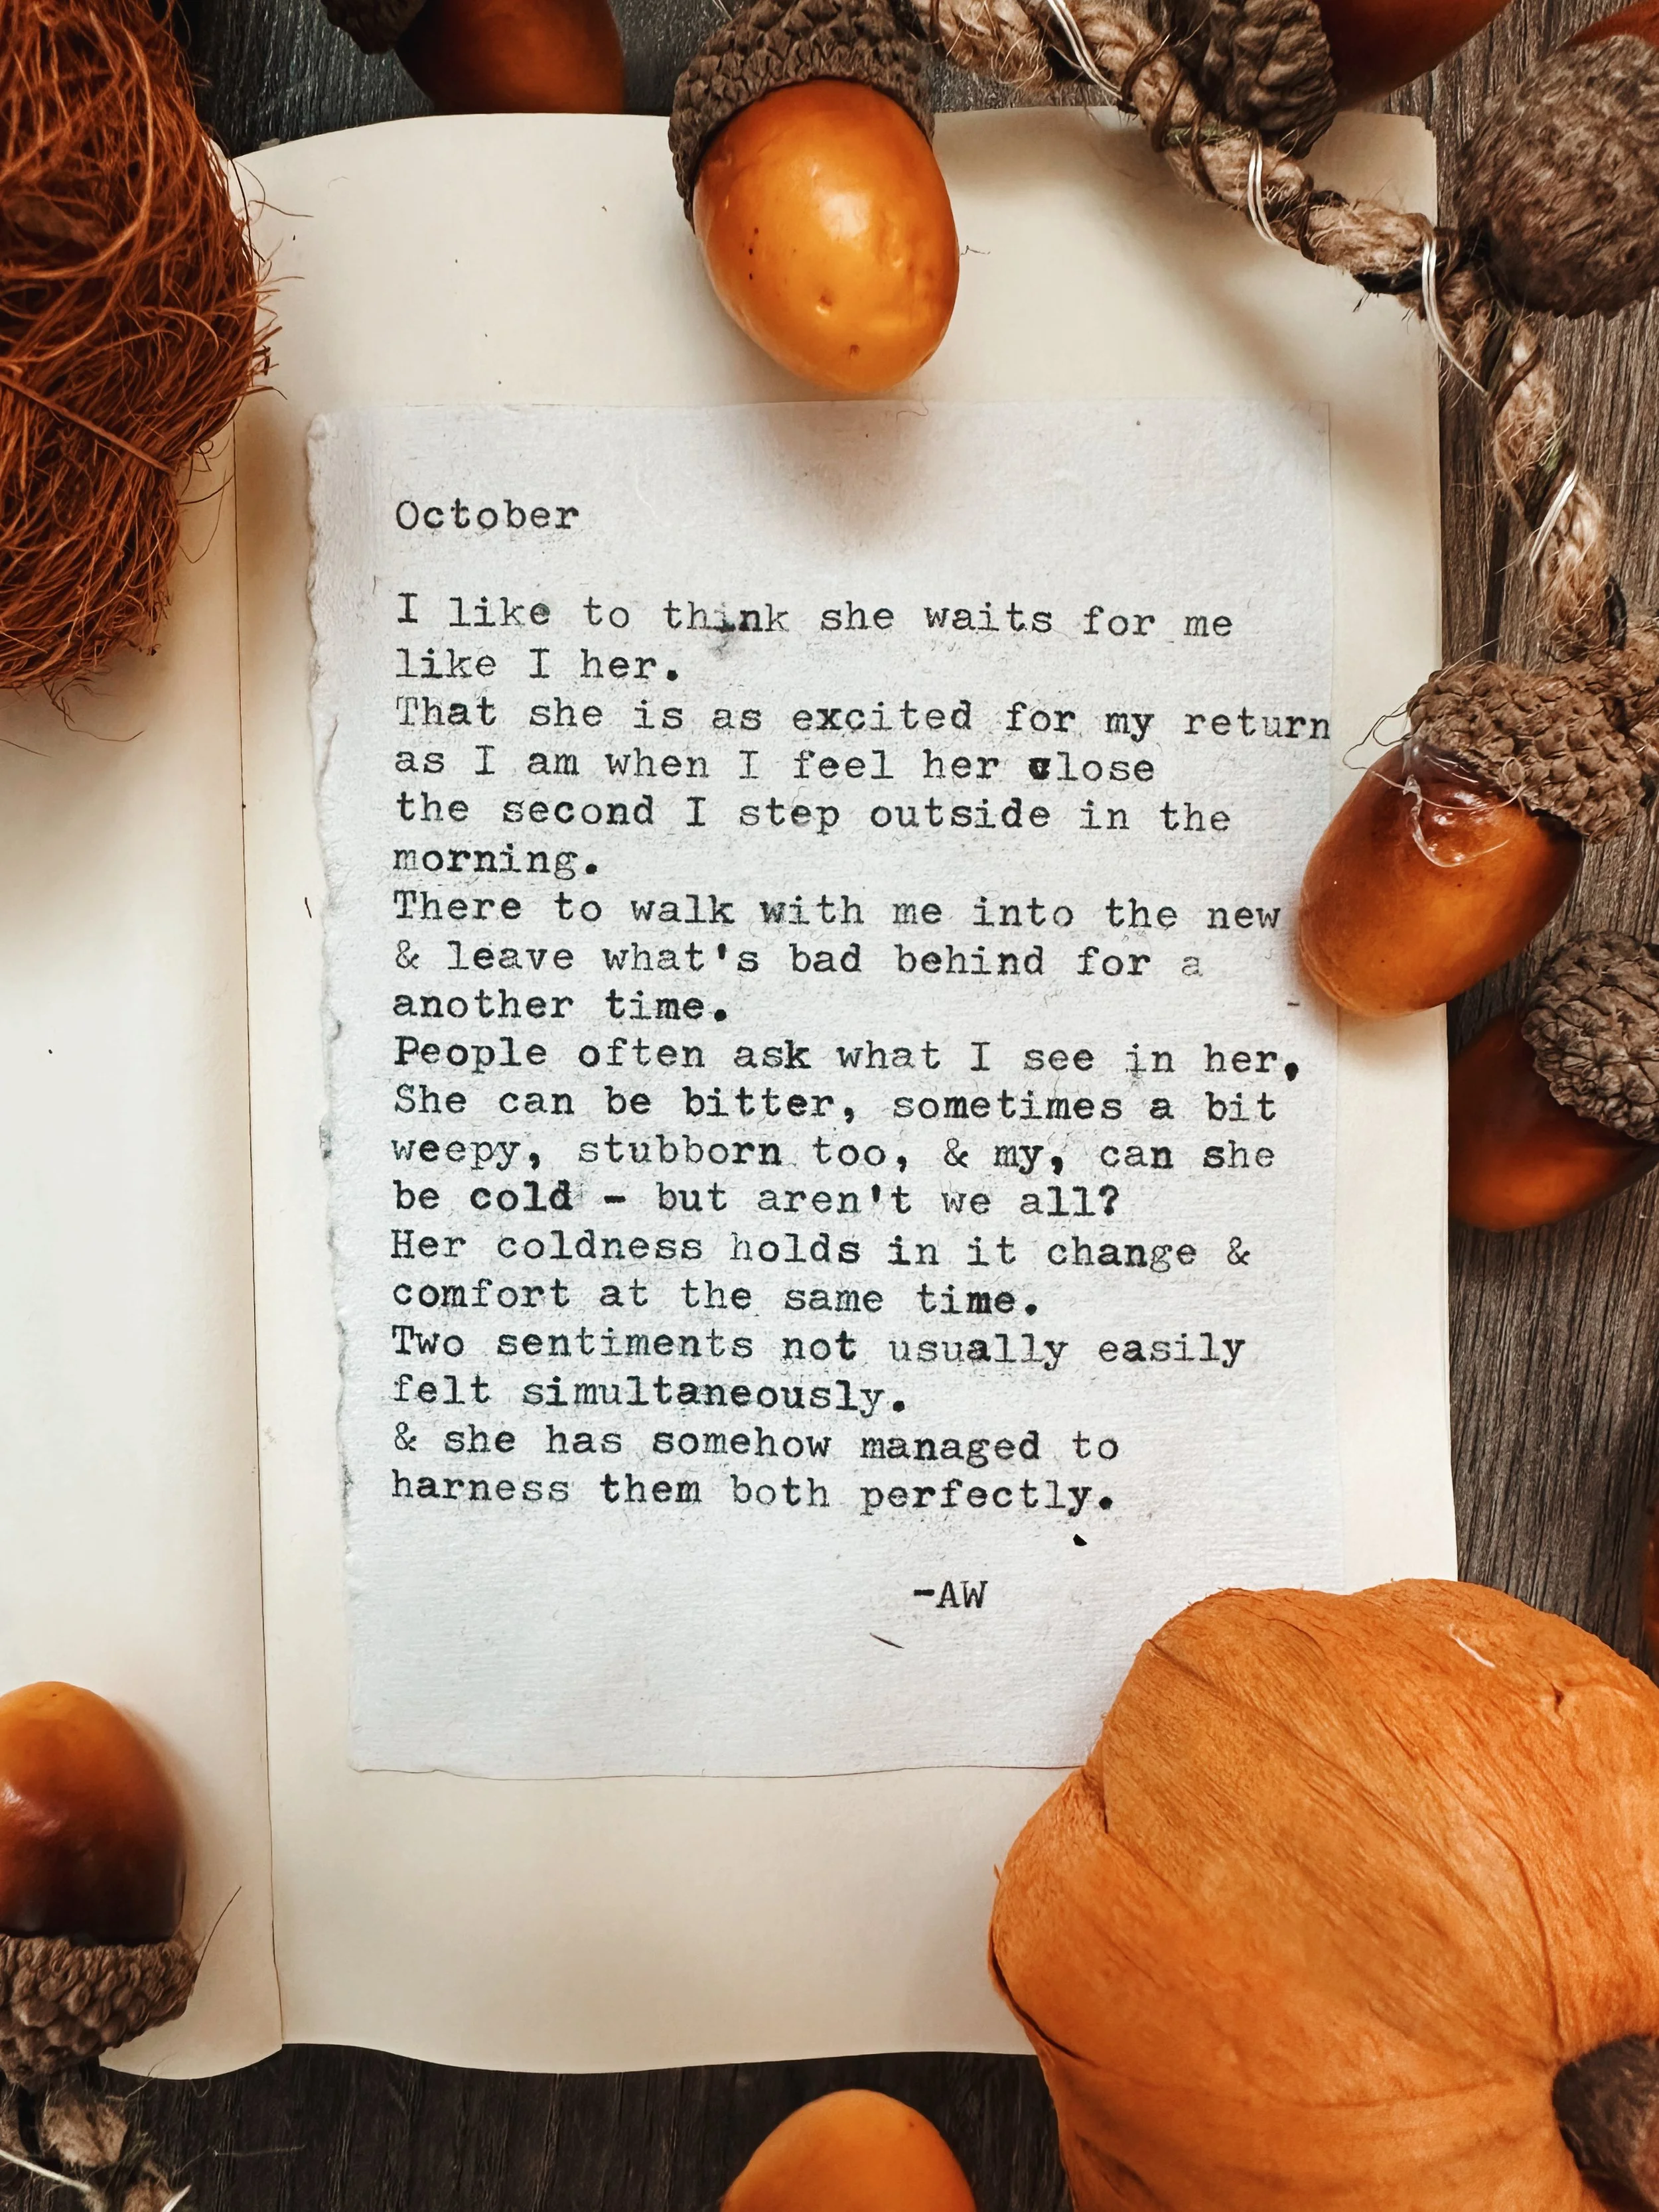 October
I like to think she waits for me
like I her.
That she is as excited for my return
as I am when I feel her close
the second I step outside in the
morning.
There to walk with me into the new
& leave what's bad behind for a
another time.
People often ask what I see in her,
She can be bitter, sometimes a bit
weepy, stubborn too, & my, can she
be cold - but aren't we all?
Her coldness holds in it change &
comfort at the same time.
Two sentiments not usually easily
felt simultaneously.
& she has somehow managed to
harness them both perfectly.
-AW